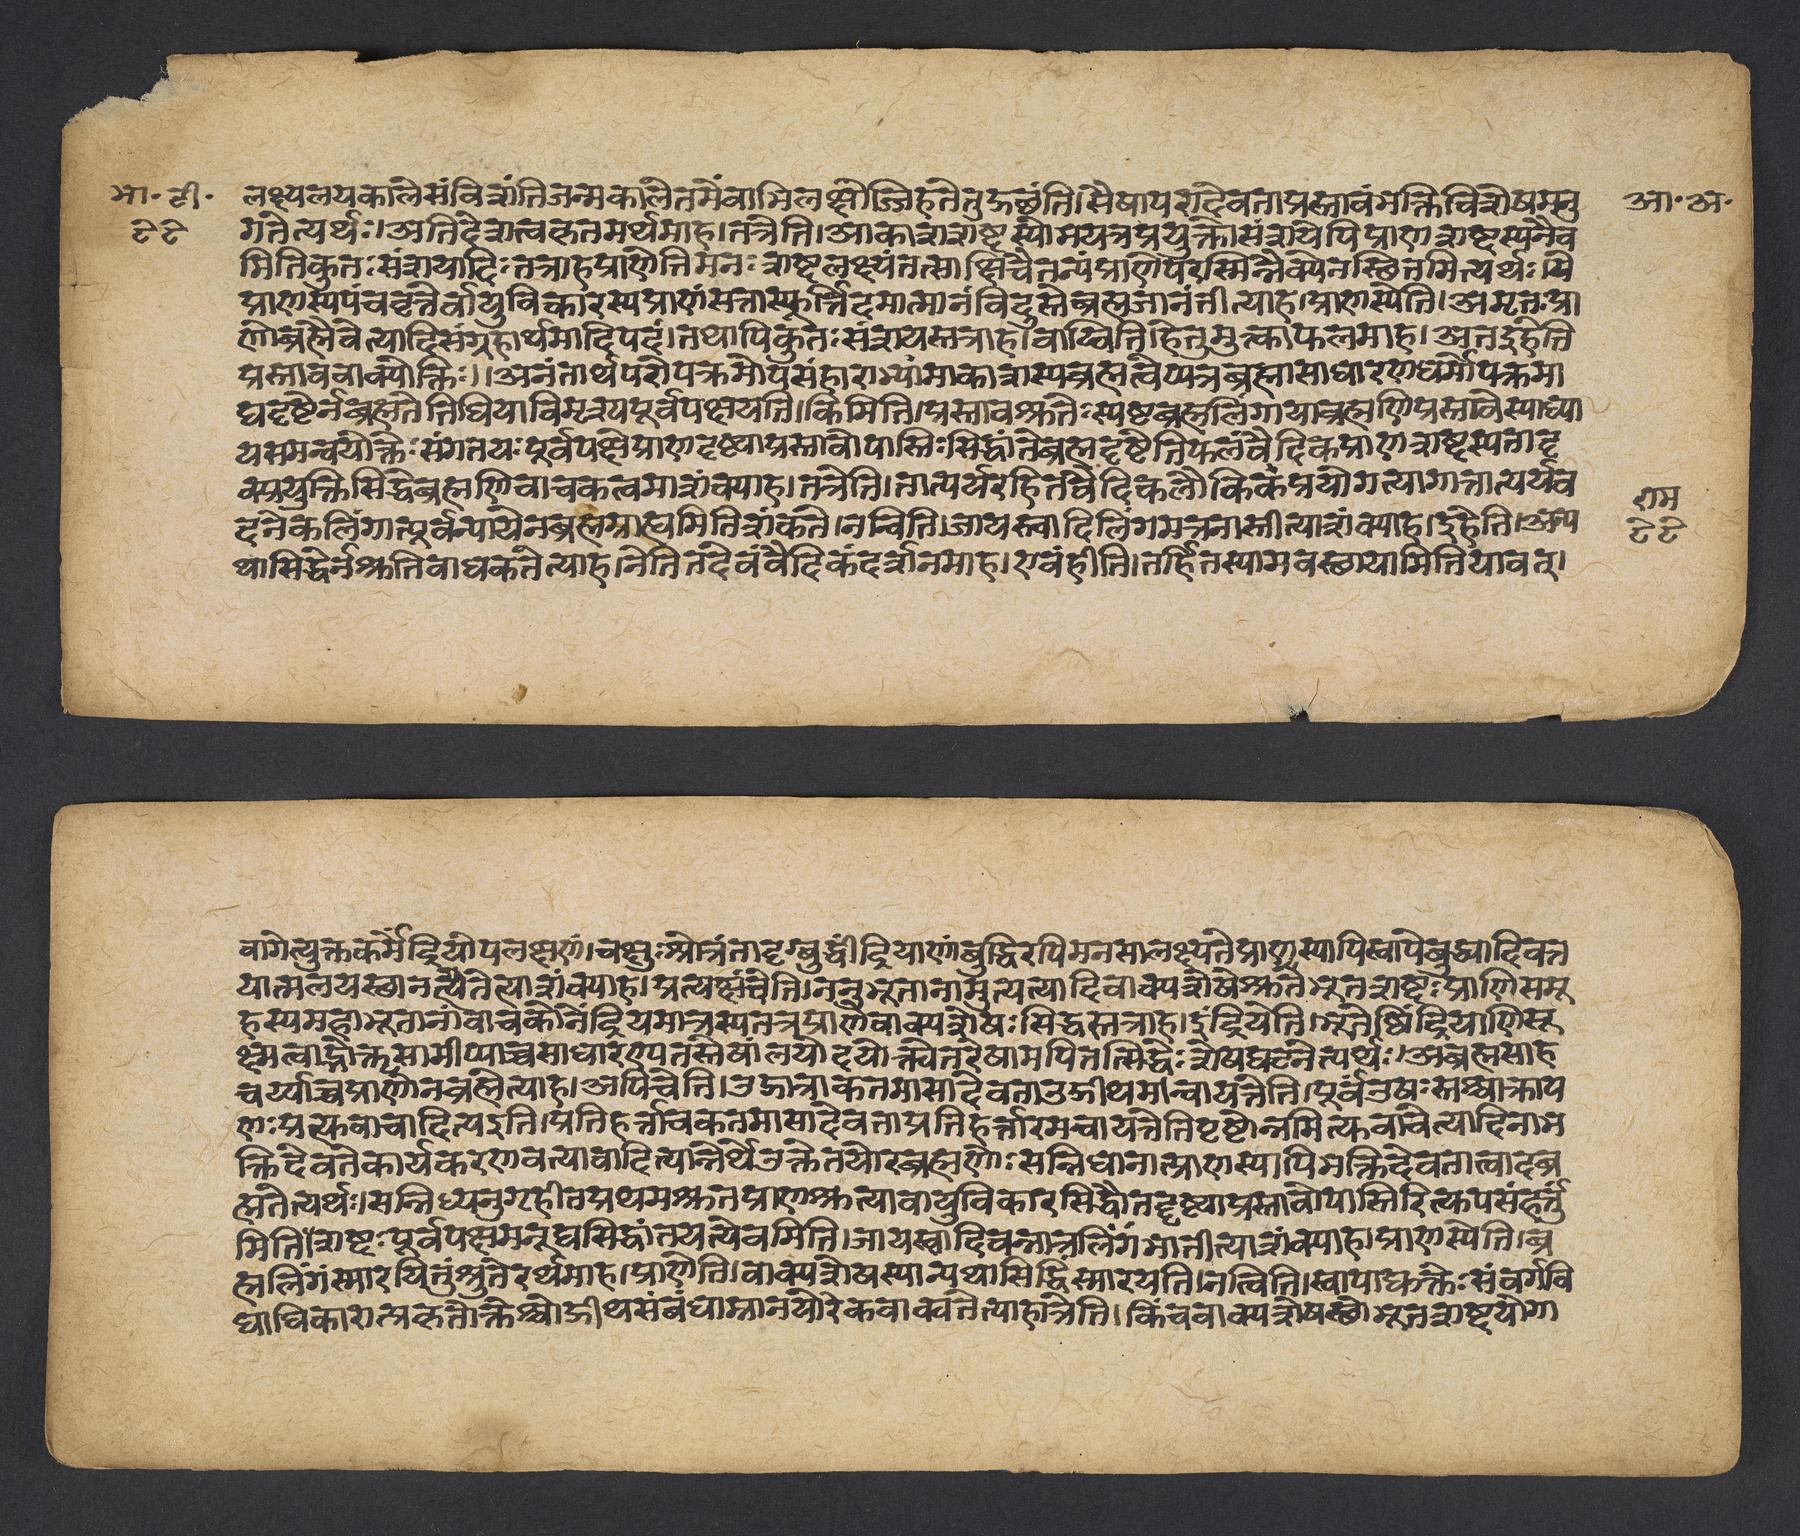 भा. टी. लक्ष्यलयकालेसंविशंतिजन्मकालेतमेवाभिलक्ष्योज्जिहतेतुद्गछंति।सैषापरादेवताप्रस्तावंभक्तिविशेषमनु आ. अ.
२२ गतेत्यर्थः।अतिदेशत्वकृतमर्थमाह।तत्रेति।आकाशशब्दस्योभयत्रप्रयुक्तेःसंशयेपिप्राणशब्दस्यनैव
मितिकुतःसंशयादिःतत्राहप्राणेतिमनःशब्दलक्ष्यंतत्साक्षिचैतन्यंप्राणेपरस्मिन्नैक्येनस्थितमित्यर्थः।ये
प्राणस्यपंचवृत्तेर्वायुविकारस्यप्राणंसत्तास्फूर्त्तिदमात्मानंविदुस्तेब्रह्मजानंतीत्याह।प्राणस्येति।अमृतःप्रा
णोब्रह्मैवेत्यादिसंग्रहार्थमादिपदं।तथापिकुतःसंशयस्तत्राह।वाय्विति।हेतुमुत्काफलमाह।अतइहेति
प्रस्ताववाक्योक्तिः।।अनंतार्थपरोपक्रमोपसंहाराभ्यामाकाशस्यब्रह्मत्वेप्यत्रब्रह्मासाधारणधर्मोपक्रमा
द्यदृष्टेर्नब्रह्मतेतिधियाविमृश्यपूर्वपक्षयति।किमिति।प्रस्तावश्रुतेःस्पष्टब्रह्मलिंगायाब्रह्मणिप्रस्तावेस्याध्या
यसमन्वयोक्तेःसंगतयःपूर्वपक्षेप्राणदृष्ट्याप्रस्तावोपास्तिःसिद्धांतेब्रह्मदृष्टेतिफलंवैदिकप्राणशब्दस्यतादृ
क्प्रयुक्तिसिद्धेब्रह्मणिवाचकत्वमाशंक्याह।तत्रेति।तात्पर्यरहितवैदिकलौकिकप्रयोगत्यागात्तात्पर्यव
दनेकलिंगात्पूर्वन्यायेनब्रह्मग्राह्यमितिशंकते।नन्विति।जायस्त्वादिलिंगमत्रनास्तीत्याशंक्याह।इहेति।अन्य राम
थासिद्धेर्नश्रुतिबाधकतेत्याह।नेतितदेवंवैदिकंदर्शनमाह।एवंहीति।तर्हितस्यामवस्थायामितियावत्। २२
वागेत्युक्तकर्मेंद्रियोपलक्षणं।चक्षुःश्रोत्रंतादृग्बुद्धींद्रियाणांबुद्धिरपिमनसालक्ष्यतेप्राणस्यापिस्वापेबुद्ध्यादिवत्त
यात्मलयस्थानत्यैतेत्याशंक्याह।प्रत्यक्षंचेति।ननुभूतानामुत्पत्यादिवाक्यशेषेश्रुतेभूतशब्दःप्राणिसमू
हस्यमहाभूतानांवाचकोनेंद्रियमात्रस्यतत्रप्राणेवाक्यशेषःसिद्धस्तत्राह।इंद्रियेति।भूतेष्विंद्रियाणिसू
क्ष्मत्वाद्भोक्तृसामीप्याच्चसाधारण्यतस्तेषांलयोदयोक्त्येतरेषामपितत्सिद्धेःशेषघटनेत्यर्थः।अब्रह्मसाह
चर्य्याच्चप्राणोनब्रह्मेत्याह।अपिचेति।उद्गात्राकतमासादेवताउद्गीथमन्वायत्तेति।पूर्वउषःस्तश्चाक्राय
णःप्रत्युवाचादित्यइति।प्रतिहर्त्ताचकतमासादेवताप्रतिहर्त्तारमन्वायत्तेतिपृष्टोन्नमित्युवाचेत्यादिनाभ
क्तिदेवतेकार्यकरणवत्यावादित्यान्नेर्थेउक्तेतयोरब्रह्मणोःसन्निधानात्प्राणस्यापिभक्तिदेवतात्वादब्र
ह्मतेत्यर्थः।सन्निध्यनुगृहीतप्रथमश्रुतप्राणश्रुत्यावायुविकारसिद्धौतदृष्ट्याप्रस्तावोपास्तिरित्युपसंहर्त्तु
मितिशब्दःपूर्वपक्षमनूद्यसिद्धांतयत्येवमिति।जायस्त्वादिवन्नात्रलिंगंभातीत्याशंक्याह।प्राणस्येति।ब्र
ह्मलिंगंस्मारयितुंश्रुतेरर्थमाह।प्राणेति।वाक्यशेषस्यान्यथासिद्धिंस्मारयति।नन्विति।स्वापाद्युक्तेःसंवर्गवि
द्याधिकारात्प्रकृतोक्तेश्चोद्गीथसंबंधान्नानयोरेकवाक्यतेत्याहात्रेति।किंचवाक्यशेषस्थोभूतशब्दयोगा